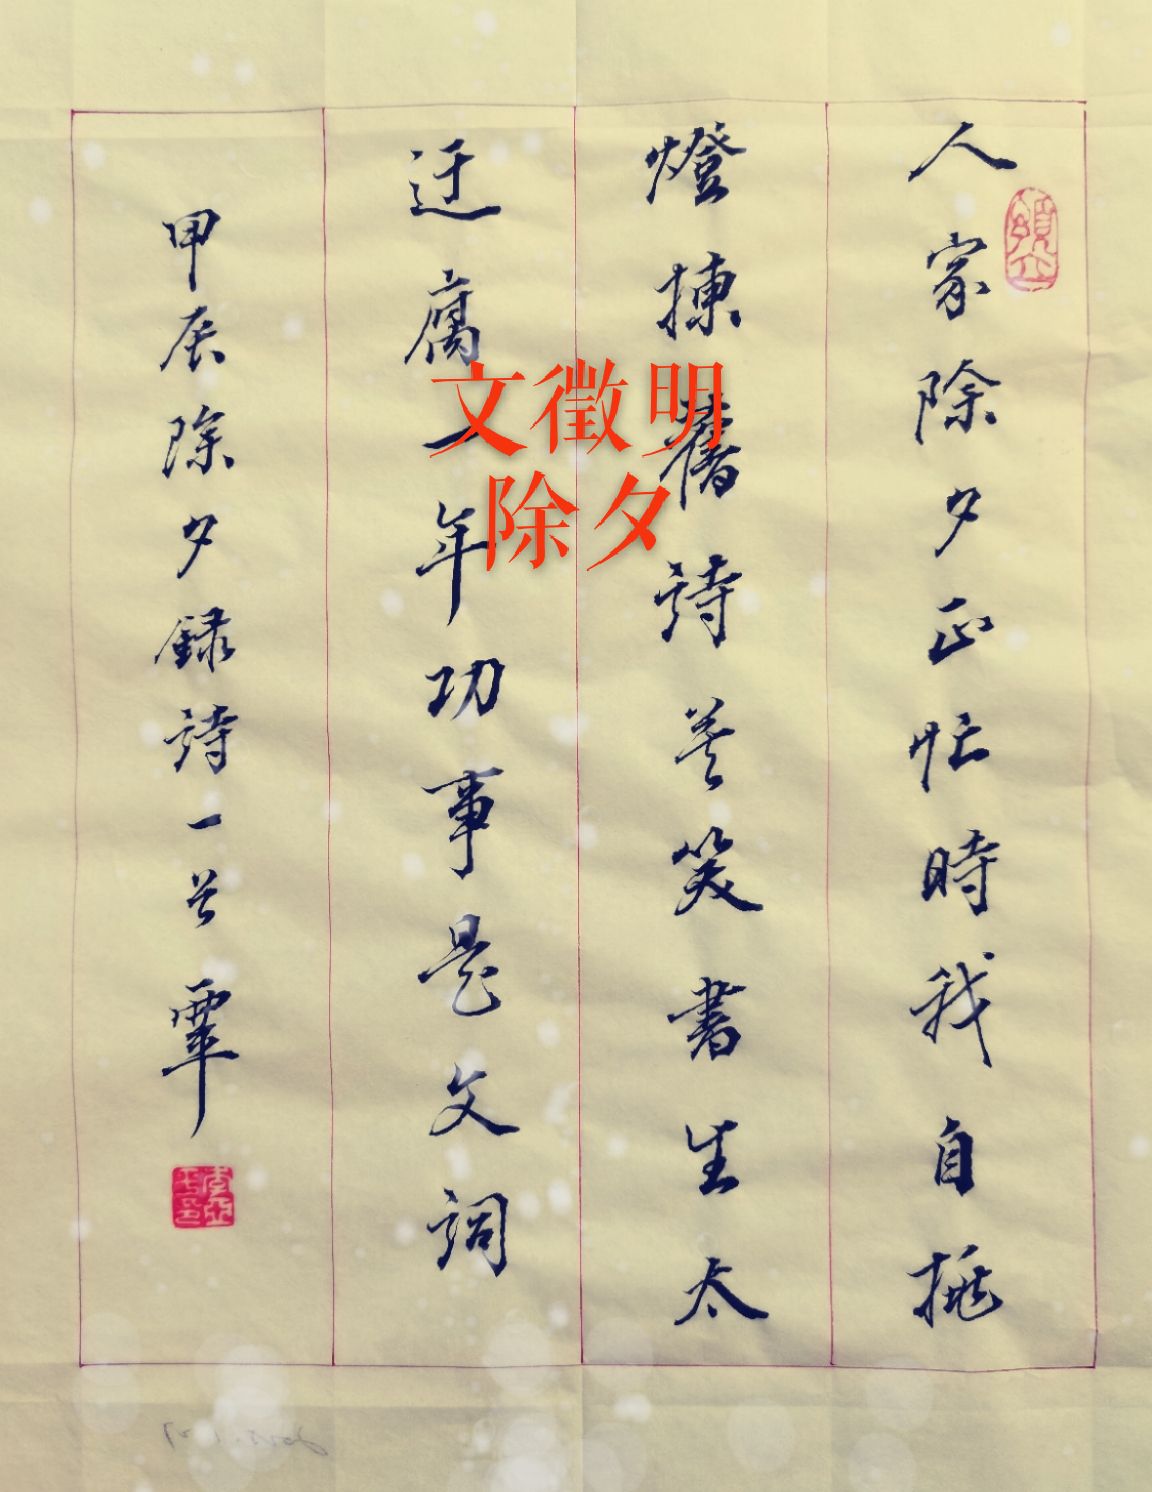 人家除夕正忙時我自挑
燈揀舊詩莫笑書生太
迂腐一年功事是文詞
甲辰除夕録詩一首覃
文徵明
除夕